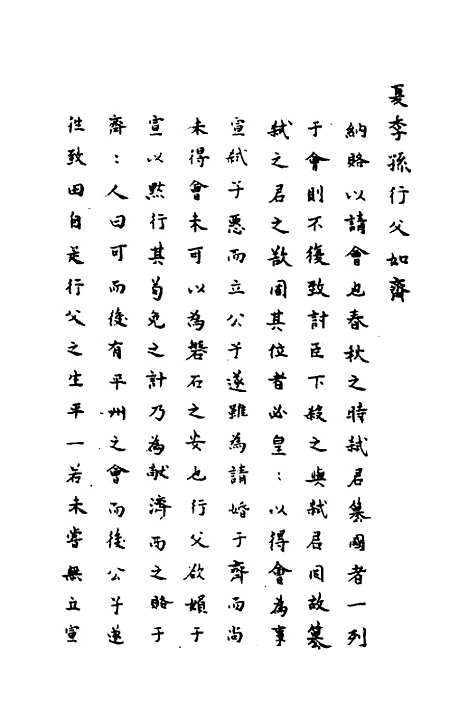 夏季孫行父如齊
納賂以請會也春秋之時弒君篡國者一列
于會則不復致討臣下殺之與弒君同故篡
弒之君之欲固其位者必皇〻以得會為事
宣弒子惡而立公子遂雖為請婚于齊而尚
未得會未可以為磐石之安也行父欲媚于
宣以㸃行其苟免之計乃為献濟西之賂于
齊〻人曰可而後有平州之會而後公子遂
徃致田自是行父之生平一若未嘗無立宣